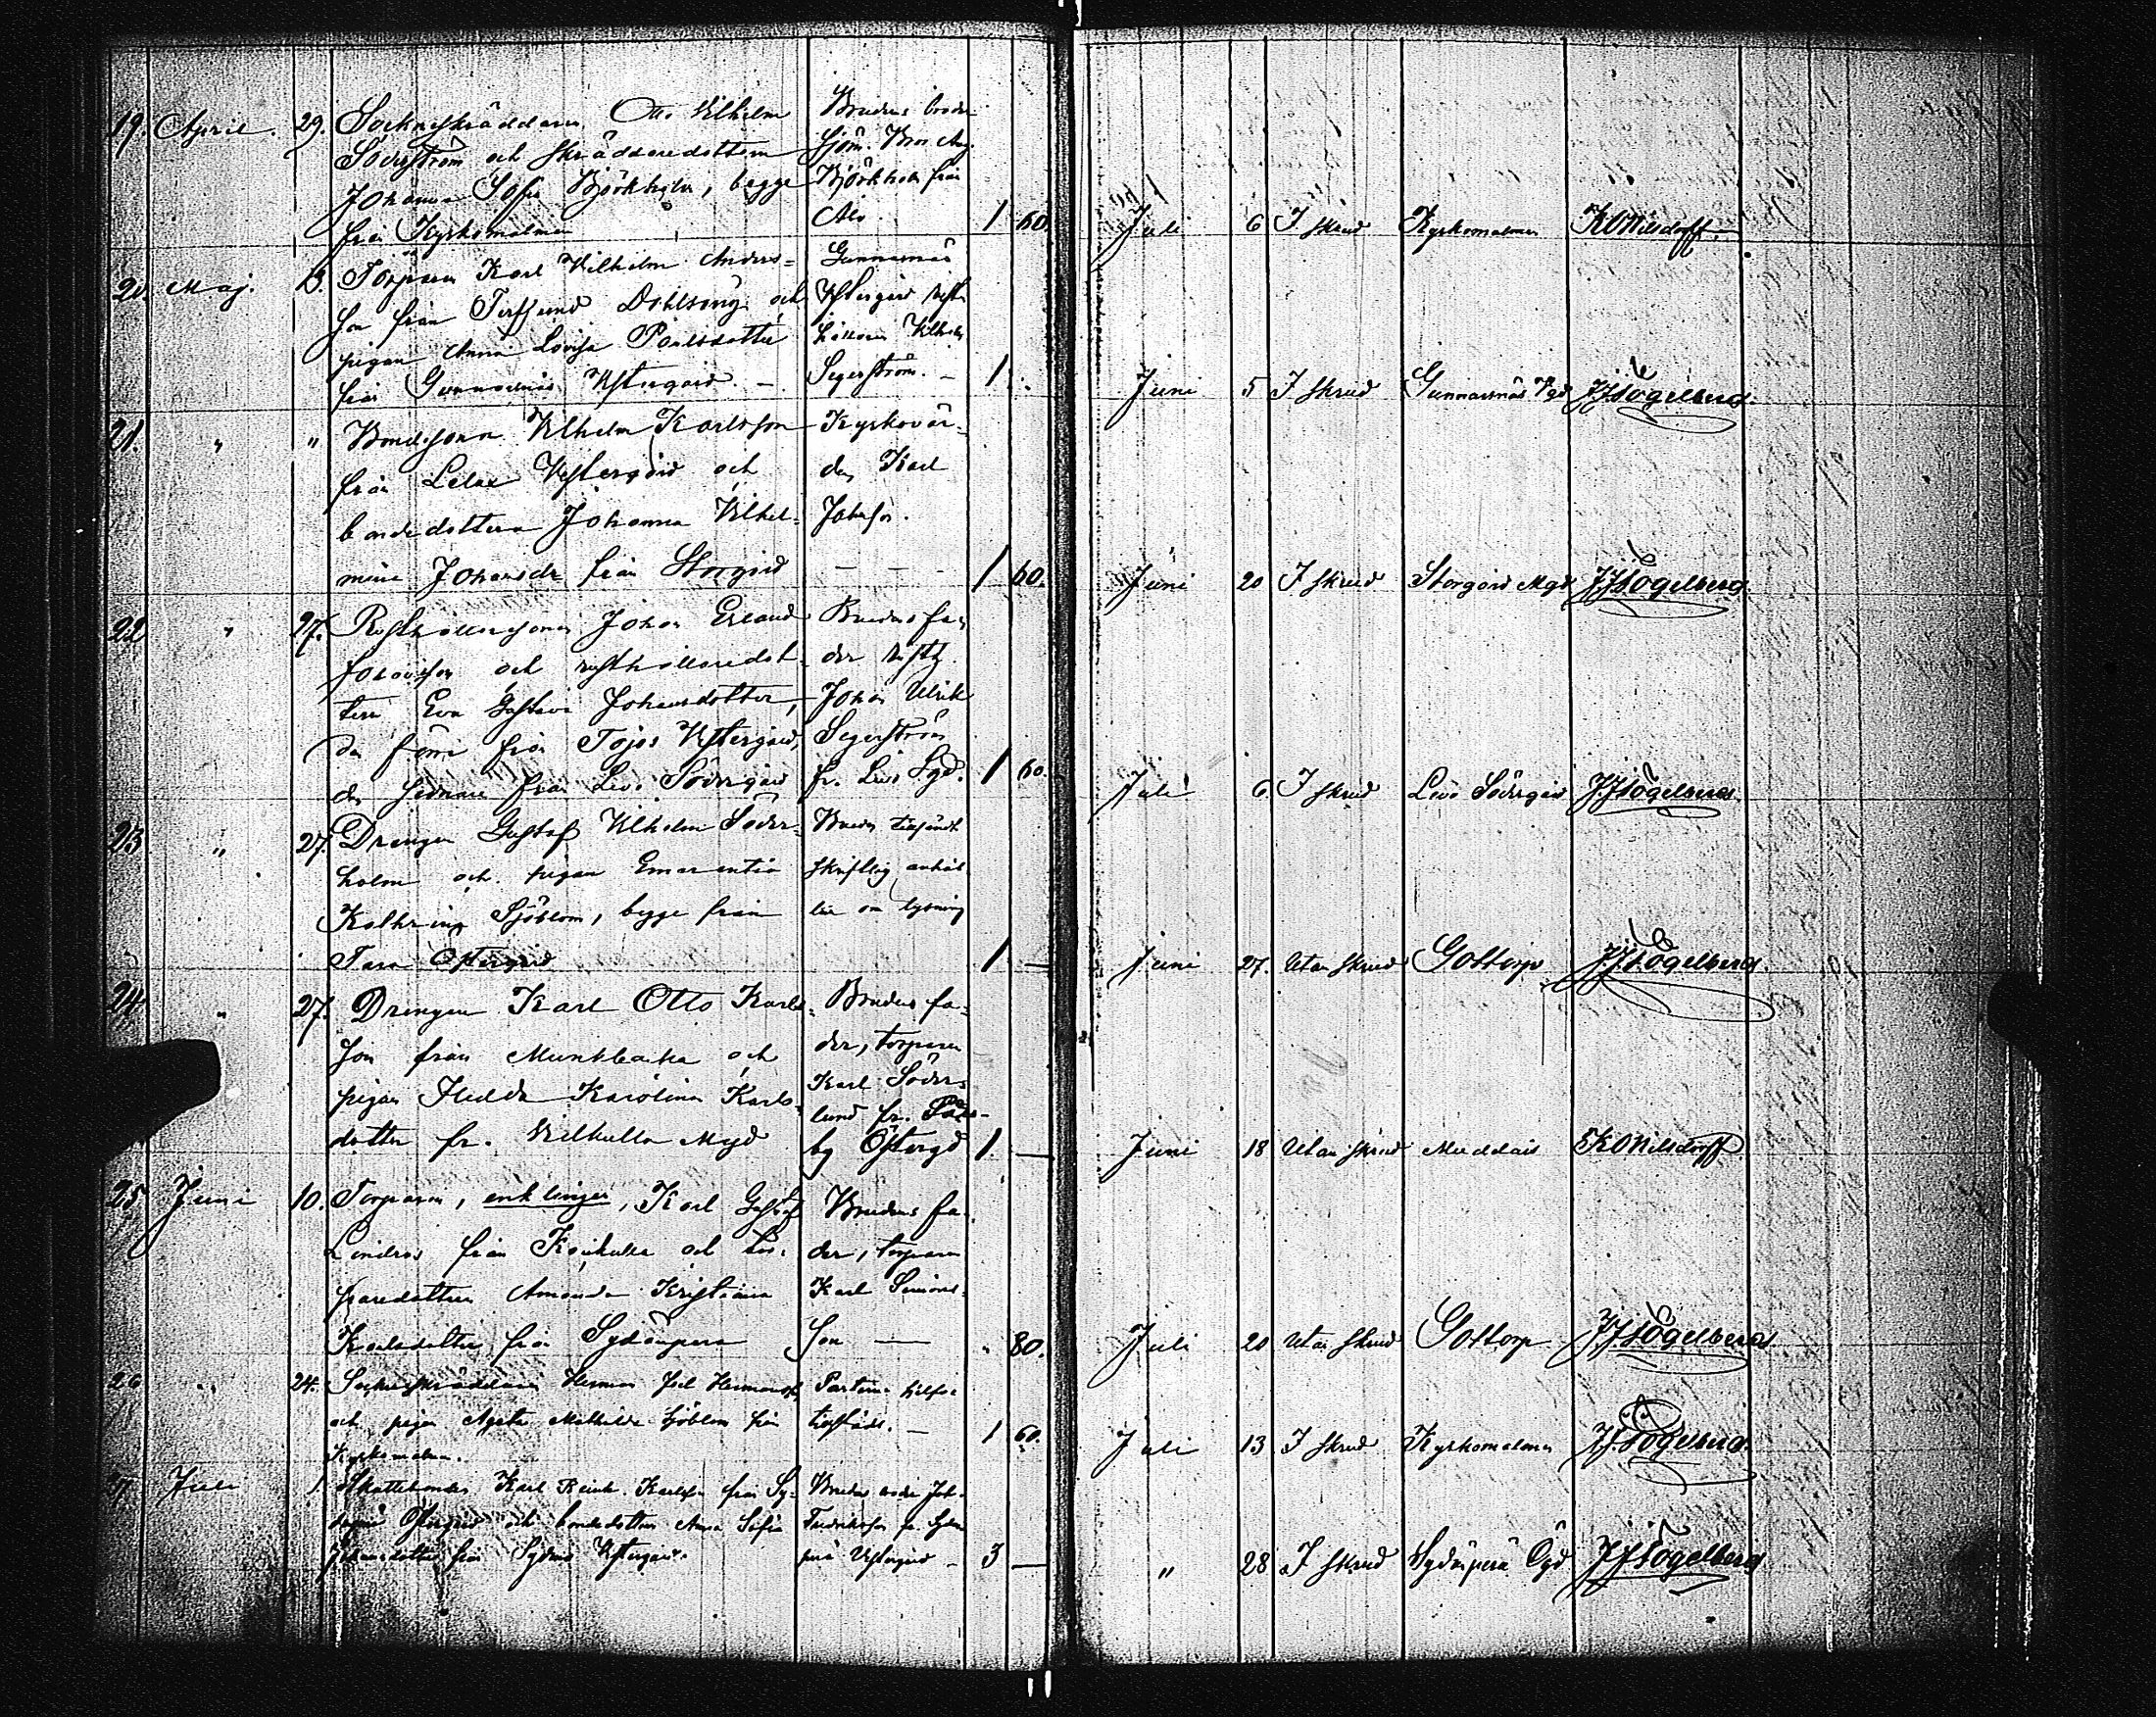 19. April. 29. Sockneskräddaren Otto Vilhelm
Söderström och skräddaredottern
Johanna Sofia Björkholm, begge
från Kyrkomalmen
Brudens broder
sjöm. Aug.
Björkholm från
1 60.
Juli 6 I skrud Kyrkomalmen K O Nilsdorff
20. Maj. 13. Torparen Karl Vilhelm Anders-
son från Dahlsäng och
pigan Anna Lovisa Påulsdotter
från Gunnarnäs Vestergård. –
Gunnarnäs
Vestergård rust-
hållaren Vilhelm
Segerström. –
1 "
Juni 5 I skrud Gunnarsnäs Vgd J J Fogelberg.
21. " " Bondesonen Vilhelm Karlsson
från Vestergård och
bondedottern Johanna Vilhel-
mina Johansdr från Storgård
Kyrkovär-
den Karl
Johnsson.
– – –
1 60.
Juni 20 I skrud Storgård Mgd J J Fogelberg
22 " 27. Rusthållaresonen Johan Erland
och rusthållaredot-
tern Eva Gustava Johansdotter,
den förre från Vestergård,
den sednare från Levo Södergård
Brudens fa-
der rusth.
Johan Ulrik
Segerström
fr. Levo Sgd.
1 60.
Juli 6. I skrud Levo Södergård J J Fogelberg
23 " 27. Drengen Gustaf Vilhelm Söder-
holm och pigan Emerentia
Kathrina Sjöblom, begge från
Östergård
skriftlig anhål-
lan om lysning
1 —
Juni 27. Utan skrud Gottorp J J Fogelberg.
24. " 27. Drengen Karl Otto Karls-
son från Munkbacka och
pigan Hedda Karolina Karls-
dotter fr. Vilkulla Mgd
Brudens fa-
der, torparen
Karl Söder-
lund fr.
by Östergd
1. —
Juni 18 Utan skrud Muddais K O Nilsdorff
25. Juni 10. Torparen, enklingen, Karl Gustaf
Lindros från och tor-
paredottern Amanda Kristiina
Karlsdotter från Sydänperä
Brudens fa-
der, torparen
Karl Simons-
son —
" 80.
Juli 20 Utan skrud Gottorp J J Fogelberg.
26 " 24. Sockneskräddaren Herman Joel
och pigan Agata Mathilda Sjöblom från
Kyrkomalmen.
–
1 60.
Juli 13 I skrud Kyrkomalmen J J Fogelberg.
27 Juli 1. Skattebonden Karl Karlsson från Sy-
Östergård och bondedottern Anna Sofia
Johansdotter från Vestergård.
Vestergård –
3 —
" 28 I skrud Sydänperä Ögd J J Fogelberg